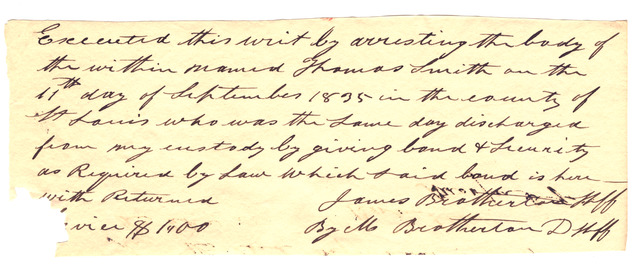 Executed this writ by arresting the body of
the within named Thomas Smith on the
11th day of September 1835 in the county of
St Louis who was the same day discharged
from my custody by giving bond & security
as Required by Law which said bond is here
with Returned James Brotherton Shff
$1.00 By M Brotherton D Shff